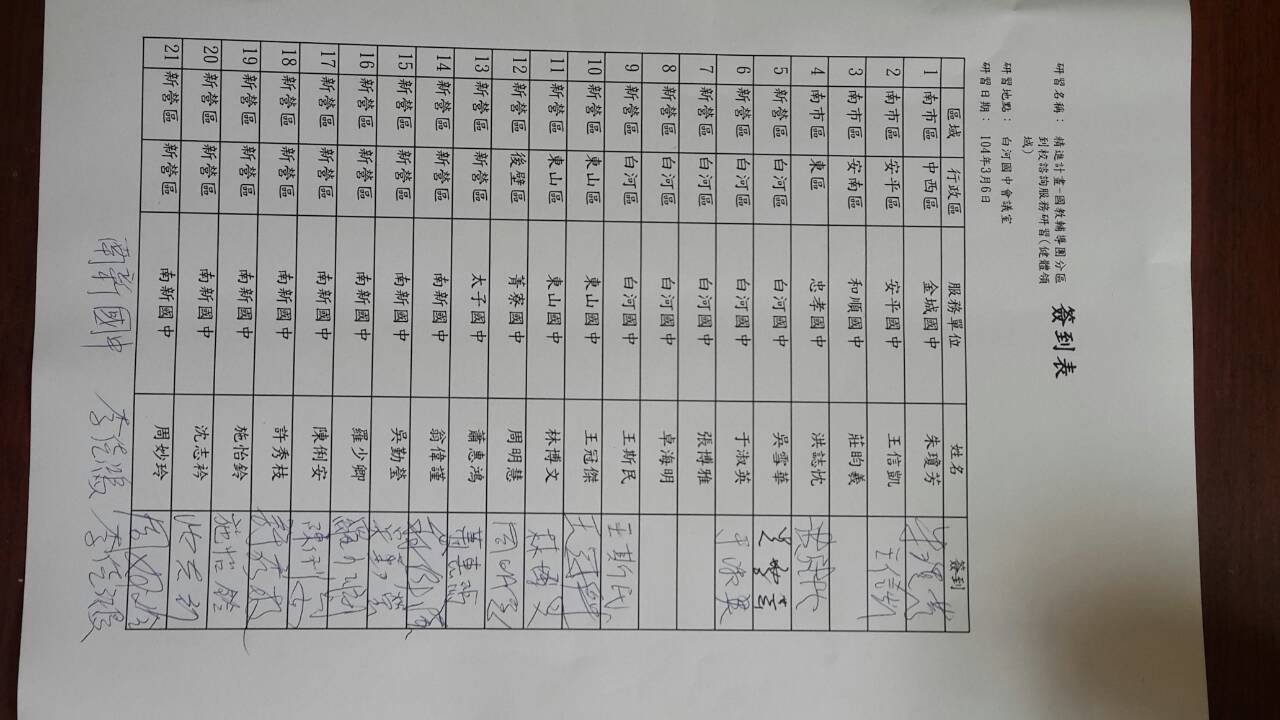 簽到表
研習名稱： 精進計畫-國教輔導團分區
到校諮詢服務研習(健體領
域)
研習地點： 白河國中會議室
研習日期： 104年3月6日
區域 行政區 服務單位 姓名 簽到
1 南市區 中西區 金城國中 朱瓊芳 朱瓊芳
2 南市區 安平區 安平國中 王信凱 王信凱
3 南市區 安南區 和順國中 莊昀義
4 南市區 東區 忠孝國中 洪誌忱 洪誌忱
5 新營區 白河區 白河國中 吳雪華 吳雪華
6 新營區 白河區 白河國中 于淑英 于淑英
7 新營區 白河區 白河國中 張博雅
8 新營區 白河區 白河國中 卓海明
9 新營區 白河區 白河國中 王斯民 王斯民
10 新營區 東山區 東山國中 王冠傑 王冠傑
11 新營區 東山區 東山國中 林博文 林博文
12 新營區 後壁區 菁寮國中 周明慧 周明慧
13 新營區 新營區 太子國中 蕭惠鴻 蕭惠鴻
14 新營區 新營區 南新國中 翁偉謹 翁偉謹
15 新營區 新營區 南新國中 吳勤瑩 吳勤瑩
16 新營區 新營區 南新國中 羅少卿 羅少卿
17 新營區 新營區 南新國中 陳俐安 陳俐安
18 新營區 新營區 南新國中 許秀枝 許秀枝
19 新營區 新營區 南新國中 施怡鈴 施怡鈴
20 新營區 新營區 南新國中 沈志衿 沈志衿
21 新營區 新營區 南新國中 周妙玲 周妙玲
南新國中